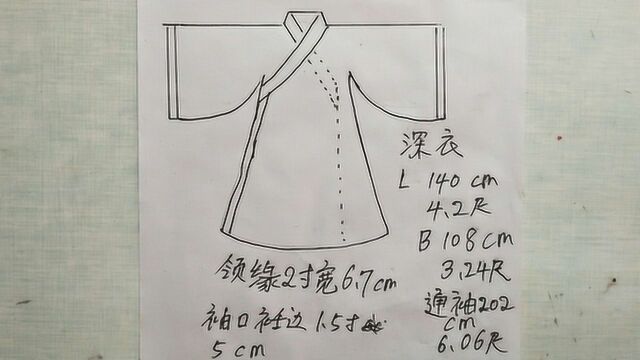 深衣
L 140 cm
4.2尺
B 108 cm
3.24尺
通袖202
cm
6.06尺
领缘2寸宽6.7cm
袖口衽边1.5寸
5cm